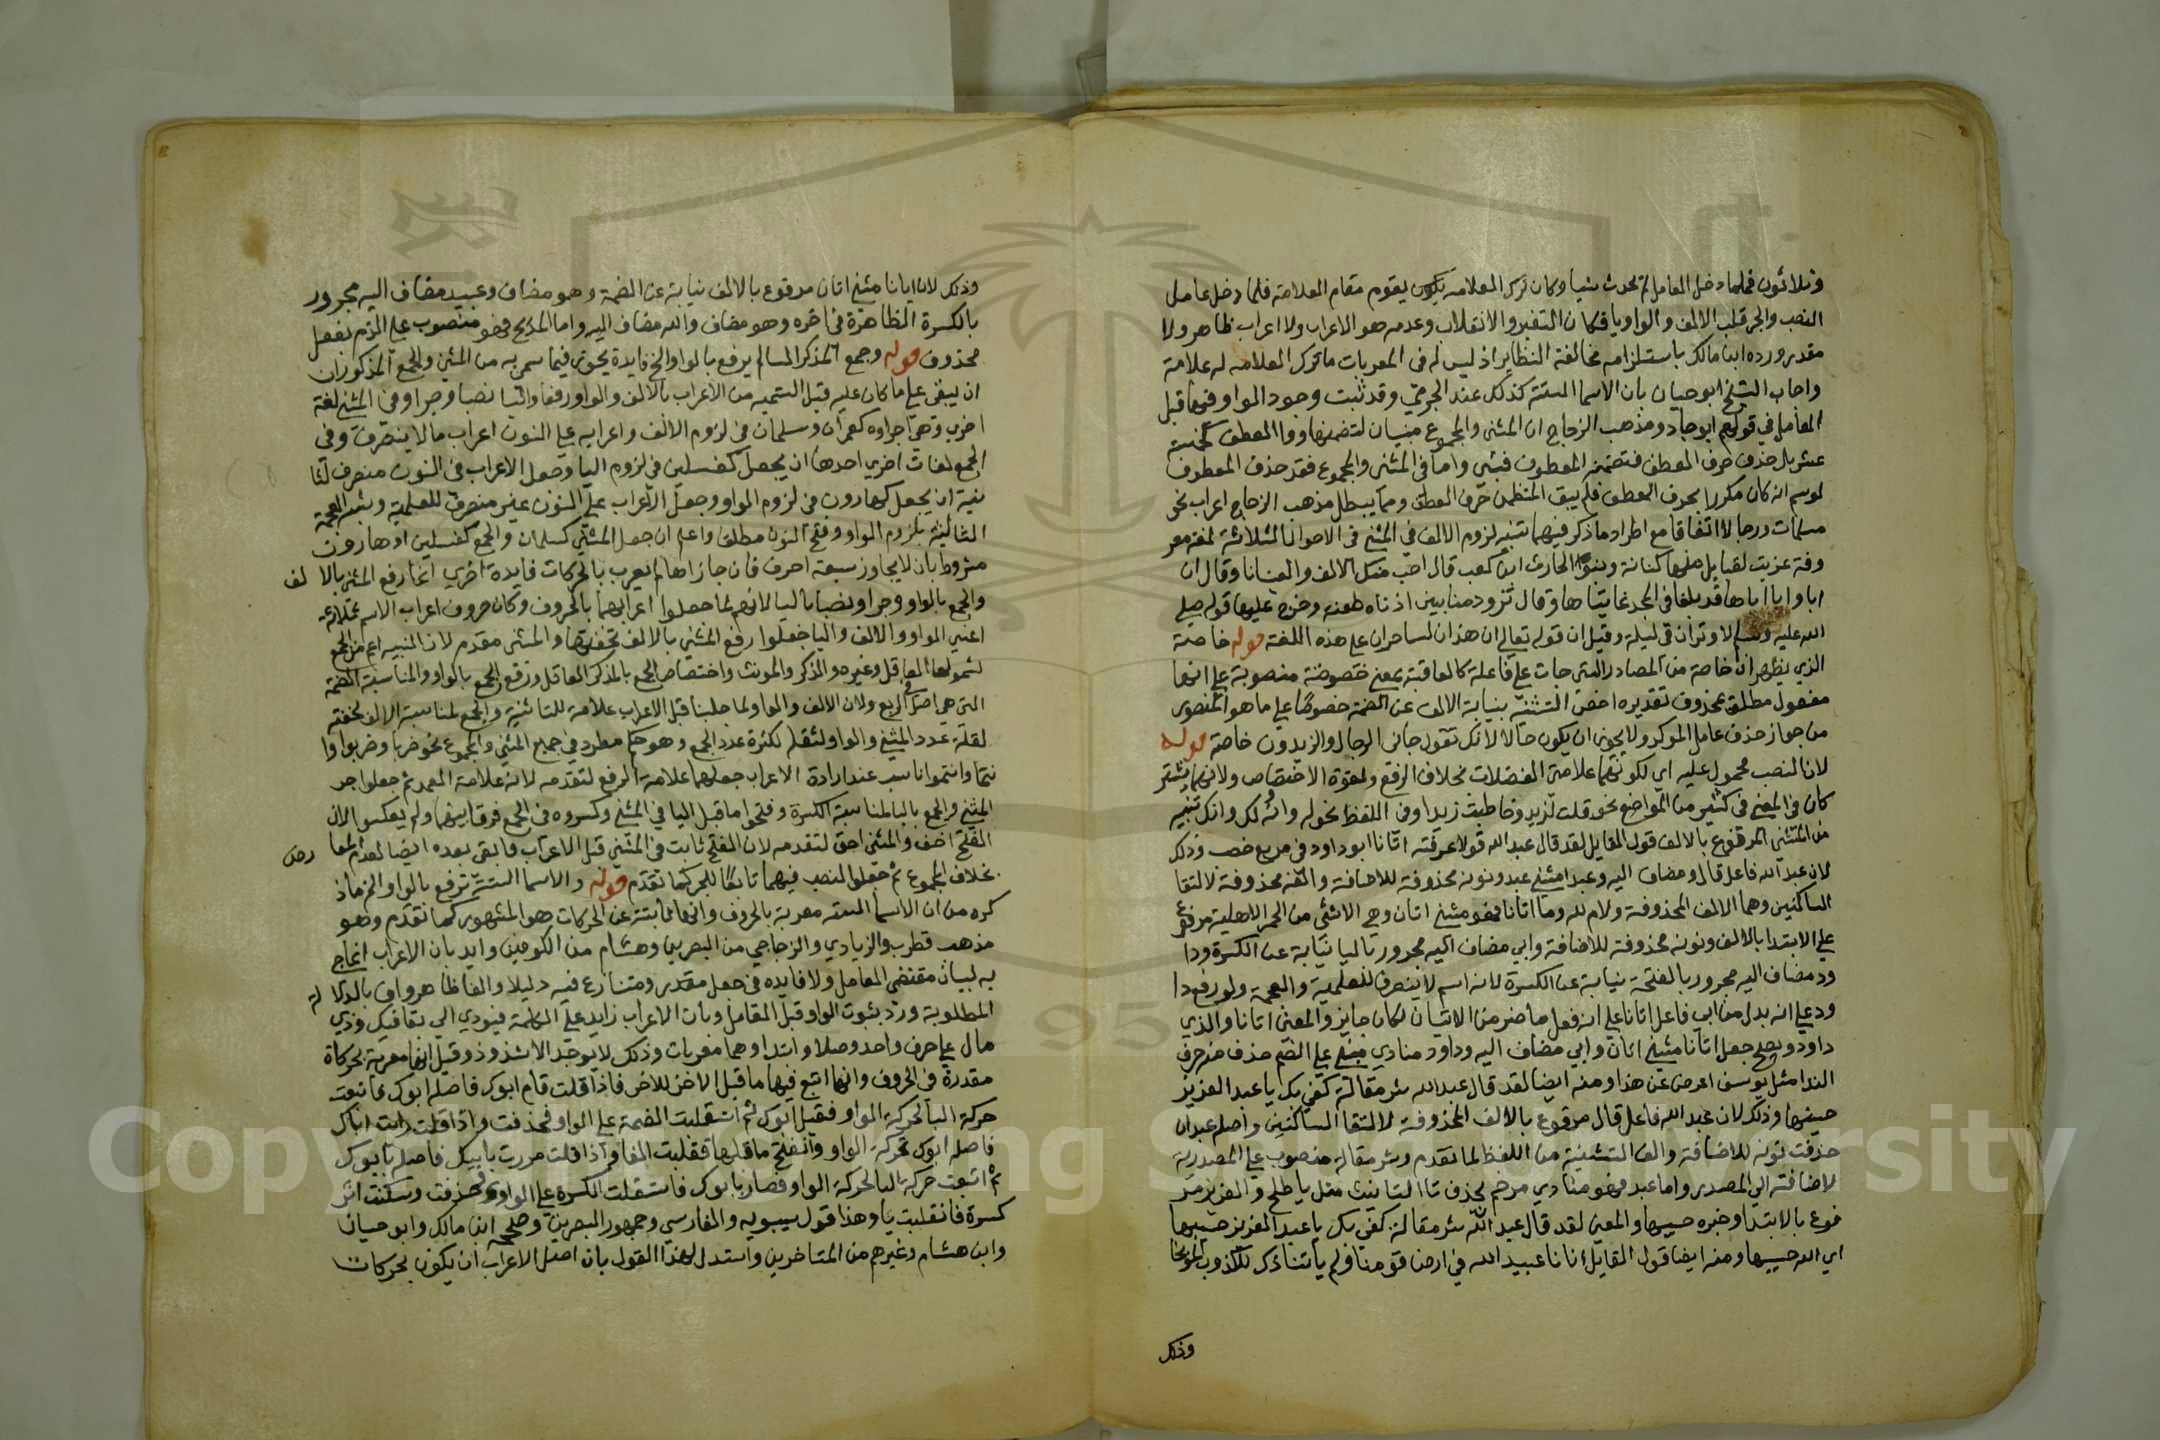 وثلاثون فلما دخل العامل لم يحدث شيا وكان ترك العلامة يكون يقوم مقام العلامة فلما دخل عامل
النصب والجر قلب الالف والواو يا فكان التغير والانقلاب وعدمه هو الاعراب ولا اعراب ظاهر ولا
مقدر ورده ابن مالك باستلزامه مخالفة النظاير اذ ليس له في المعربات ما ترك العلامه له علامة
واجاب الشيخ ابو حيان بان الاسما الستة كذلك عند الجرمي وقد ثبت وجود الواو فيها قبل
العامل في قولهم ابو جاد ومذهب الزجاج ان المثنى والمجموع مبنيان لتضمنها واو العطف كخمسة
عشر بل حذف حرف العطف فتضمنه المعطوف فبني واما في المثنى والمجموع فقد حذف المعطوف
لو سم انه كان مكررا بحرف العطف فلم يبق المتضمن حرف العطف ومما يبطل مذهب الزجاج اعراب نحو
مسلمات ورجالا اتفاقا مع اطراد ما ذكر فيهما تنبيه لزوم الالف في المثنى في الاحوال الثلاثة لغة معر
وفة عزيت لقبايل منها كنانة وبنو الحارث ابن كعب قال احب منك الالف والعينانا وقال ان
اباوا ابا اباها قد بلغا في المجد غايتاها وقال تزود منا بين اذناه طعنه وخرج عليها قوله صلى
الله عليه وسلم لا وتران في ليلة وقيل ان قوله تعالى ان هذان لساحران على هذه اللغة قوله خاصة
الذي يظهر ان خاصة من المصادر التي جات على فاعلة كالعاقبة بمعنى خصوصة منصوبة على انها
مفعول مطلق محذوف تقديره اخص التثنية بنيابة الالف عن الضمة خصوصا على ما هو المنصور
من جواز حذف عامل الموكد ولا يجوز ان يكون حالا لانك تقول جاني الرجال والزيدون خاصة قوله
لان النصب محمول عليه اي لكونهما علامتي الفضلات بخلاف الرفع ولقوة الاختصاص ولانهما يشتر
كان في المعنى في كثير من المواضع نحو قلت لزيد وخاطبت زيدا وفي اللفظ نحو له وانه لك وانك تنبيه
من المثنى المرفوع بالالف قول القايل لقد قال عبد الله قولا عرفته اتانا ابو داود في مربع خصب وذلك
لان عبد الله فاعل قال ومضاف اليه وعبدا مثنى عبد ونونه محذوفة للاضافة والفه محذوفة لالتقا
الساكنين وهما الالف المحذوفة ولام لله وما اتانا فهو مثنى اتان وهي الانثى من الحمر الاهلية مرفوع
على الابتدا بالالف ونونه محذوفة للاضافة وابي مضاف اليه مجرور باليا نيابة عن الكسرة ودا
ود مضاف اليه مجرور بالفتحة نيابة عن الكسرة لانه اسم لا ينصرف للعلمية والعجمة ولو رفع دا
ود على انه بدل من ابي فاعل اتانا على انه فعل ماض من الاتيان لكان جايز والمعنى اتانا والذي
داود ويصح جعل اتانا مثنى اتان وابي مضاف اليه وداود منادي مبني على الضم حذف منه حرف
الندا مثل يوسف اعرض عن هذا ومنه ايضا لقد قال عبد الله شر مقالة كفى بك يا عبد العزيز
حسيبها وذلك لان عبد الله فاعل قال مرفوع بالالف المحذوفة لالتقا الساكنين واصله عبدان
حذفت نونه للاضافة والف التثنية من اللفظ لما تقدم وشر مقالة منصوب على المصدرية
لاضافته الى المصدر واما عبد فهو منادي مرخم بحذف تا التانيث مثل يا طلح والعزيز مر
فوع بالابتدا وخبره حسيبها والمعنى لقد قال عبد الله شر مقالة كفى بك يا عبد العزيز حسيبها
اي الله حسيبها ومنه ايضا قول القايل اتانا عبيد الله في ارض قومنا ولم ياتنا ذك الكذوب الموبخا
وذلك
وذلك لان اتانا مثنى اتان مرفوع بالالف نيابة عن الضمة وهو مضاف وعبيد مضاف اليه مجرور
بالكسرة الظاهرة في اخره وهو مضاف والله مضاف اليه واما المذبح فهو منصوب على الذم بفعل
محذوف قوله وجمع المذكر السالم يرفع بالواو الخ فايدة يجوز فيما سمي به من المثنى والجمع المذكوران
ان يبقى على ما كان عليه قبل التسميه من الاعراب بالالف والواو رفعا واليا نصبا وجرا وفي المثنى لغة
اخرى وهي اجراوه كعمران وسلمان في لزوم الالف واعرابه على النون اعراب ما لا ينصرف وفي
الجمع لغات اخرى احدها ان يجعل كغسلين في لزوم اليا وجعل الاعراب في النون منصرف الثا
نية ان يجعل كهارون في لزوم الواو وجعل الاعراب على النون غير منصرف للعلمية وشبه العجمة
الثالثة يلزوم الواو وفتح النون مطلقا واعلم ان جعل المثنى كسلمان والجمع كغسلين او هارون
مشروط بان لا يجاوز سبعة احرف فان جازاها لم يعرب بالحركات فايدة اخرى انما رفع المثنى بالالف
والجمع بالواو وجرا ونصبا باليا لانهم لما جعلوا اعرابهما بالحروف وكان حروف اعراب الاسم ثلاثة
اعني الواو والالف واليا جعلوا رفع المثنى بالالف لخفتها والمثنى مقدم لان التثنيه اعم من الجمع
لشمولها العاقل وغيره والمذكر والمونث واختصاص الجمع بالمذكر العاقل ورفع الجمع بالواو والمناسبة الضمة
التي هي اصل في الرفع ولان الالف والواو لما جلبنا قبل الاعراب علامة للتثنية والجمع لمناسبة الالف لخفته
لقلة عدد المثنى والواو لثقله لكثرة عدد الجمع وهو حكم مطرد في جميع المثنى والمجموع نحو ضربا وضربوا وا
نتما وانتموا ناسب عند ارادة الاعراب جعلهما علامة الرفع لتقدمه لانه علامة العمد ثم جعلوا جر
المثنى والجمع باليا لمناسبة الكسرة وفتحوا ما قبل اليا في المثنى وكسروه في الجمع فرقا بينهما ولم يعكسوا لان
الفتح اخف والمثنى احق لتقدمه لان الفتح ثابت في المثنى قبل الاعراب فابقى بعده ايضا لعدم المعارض
بخلاف المجموع ثم جعلوا النصب فيهما تابعا للجر كما تقدم قوله والاسما الستة ترفع بالواو الخ ماذ
كره من ان الاسما الستة معربة بالحروف وانها نايبتة عن الحركات هو المشهور كما تقدم وهو
مذهب قطرب والزيادي والزجاجي من البصريين وهشام من الكوفيين وايد بان الاعراب انما جي
به لبيان مقتضى العامل ولا فايده في جعل مقدر ومتنازع فيه دليلا والغا ظاهر واف بالدلالة
المطلوبة ورد بثبوت الواو قبل العامل وبان الاعراب زايد على الكلمة فيودي الى بقا فيك وذي
مال على حرف واحد وصلا وابتدا وهما معربات وذلك لا يوجد الا شذوذا وقيل انها معربة بحركاة
مقدرة في الحروف وانها اتبع فيها ما قبل الاخر للاخر فاذا قلت قام ابوك فاصله ابوك فاتبعت
حركة البا لحركة الواو فقيل ابوك ثم استقلت الضمة على الواو فحذفت واذا قلت رايت اباك
فاصله ابوك تحركة الواو وانفتح ما قبلها فقلبت الفا واذا قلت مررت بابيك فاصله بابوك
ثم اتبعت حركة البا لحركة الواو فصار بابوك فاستقلت الكسرة على الواو فحذفت وسكنت اثر
كسرة فانقلبت يا وهذا قول سيبويه والفارسي وجمهور البصريين وصححه ابن مالك وابو حيان
وابن هشام وغيرهم من المتاخرين واستدل لهذا القول بان اصل الاعراب ان يكون بحركات
Copyright © King Saud University